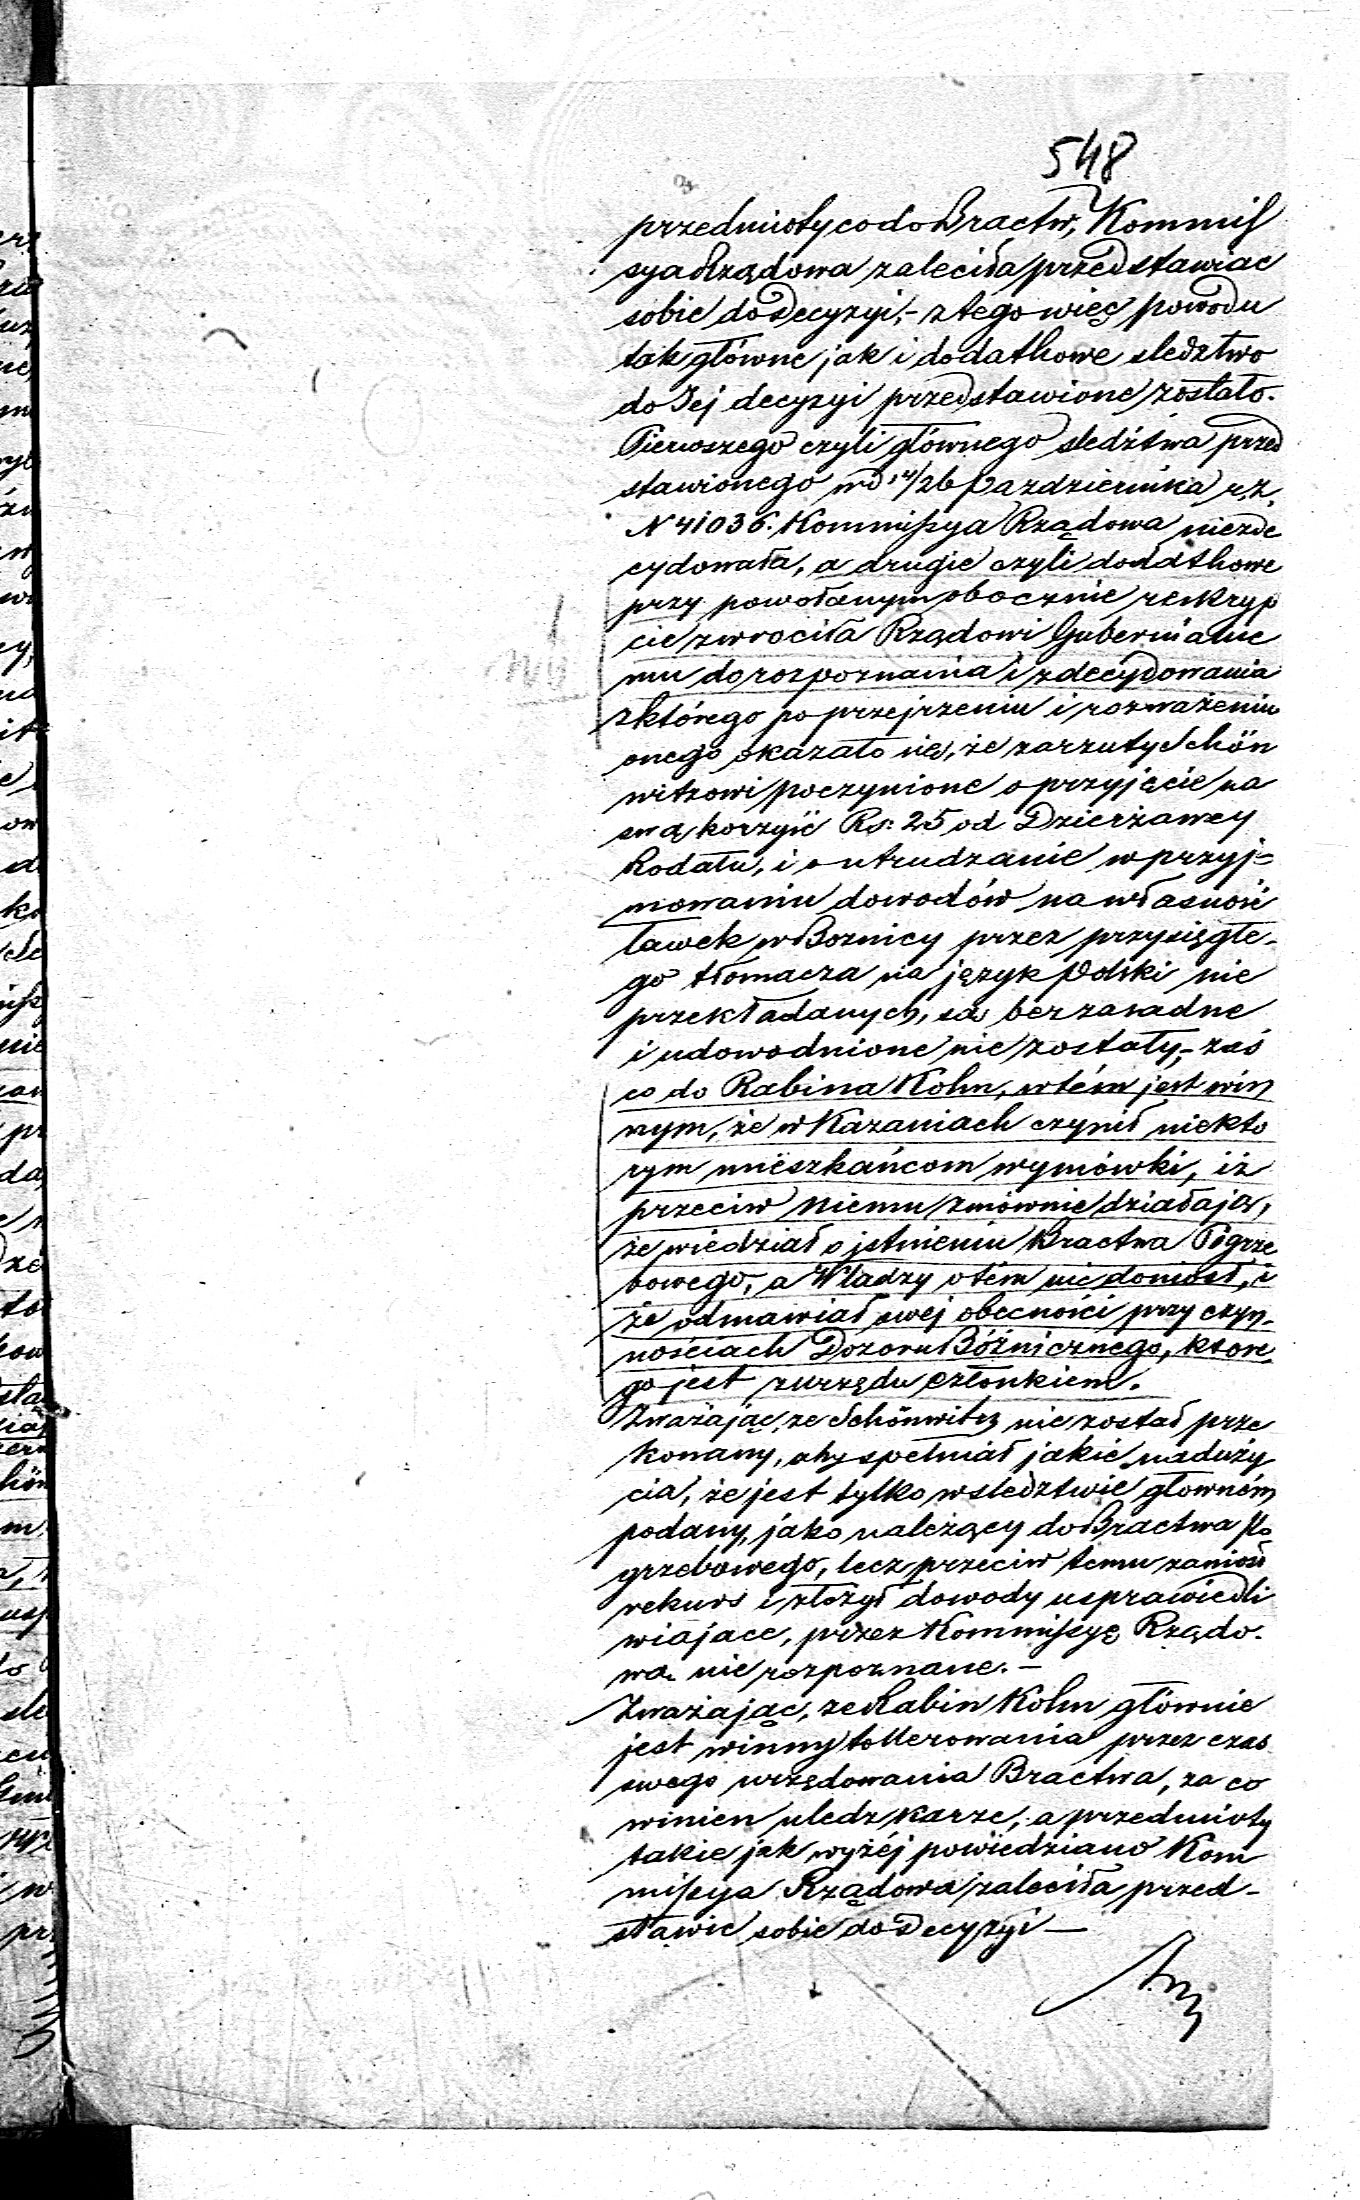 548
przedmioty co do Bractw, Kommis
sya Rządowa zaleciła przedstawiac
sobie do Decyzyi,- z tego więc powodu
tak główne jak i dodatkowe sledztwo
do Jej decyzyi przedstawione zostało.
Pierwszego czyli głównego sledźtwa przed
stawionego w d 14/26 Pazdziernika r.z.
N 41036. Kommissya Rządowa niezde
cydowała, a drugie czyli dodatkowe
przy powołanym obocznie reskryp
cie zwrociła Rządowi Gubernialne
mu do rozpoznania i zdecydowania
z którego po przejrzeniu i rozważeniu
onego okazało się, że zarzuty Schön
witzowi poczynione o przyjęcie na
swą korzyść Rs. 25 od Dzierżawcy
Kodału, i o utrudzanie w przyj=
mowaniu dowodów na własność
ławek w Boznicy przez przysięgłe-
go tłomacza na język Polski nie
przekładanych, są bezzasadne
i udowodnione nie zostały,- zaś
co do Rabina Kohn, w tém jest win
nym, że w Kazaniach czynił niekto
rym mieszkańcom wymówki, iż
przeciw niemu zmównie działają,
że wiedział o jstnieniu Bractwa Pogrze
bowego, a Władzy o tém nie doniosł, i
że odmawiał swej obecności przy czyn-
nościach Dozoru Bóźnicznego, które
go jest z urzędu członkiem.
Zważając, ze Schönwitz nie został prze
konany, aby spełniał jakie naduży
cia, że jest tylko w sledztwie głowném
podany, jako należący do Bractwa Po
grzebowego, lecz przeciw temu zaniosł
rekurs i złożył dowody usprawiedli
wiajace, przez Kommissyę Rządo-
wą nie rozpoznane.-
Zważając, ze Rabin Kohn głównie
jest winny tollerowania przez czas
swego urzędowania Bractwa, za co
winien uledz karze,- a przedmioty
takie jak wyżéj powiedziano Kom
missya Rządowa zaleciła przed-
stawic sobie do Decyzyi —